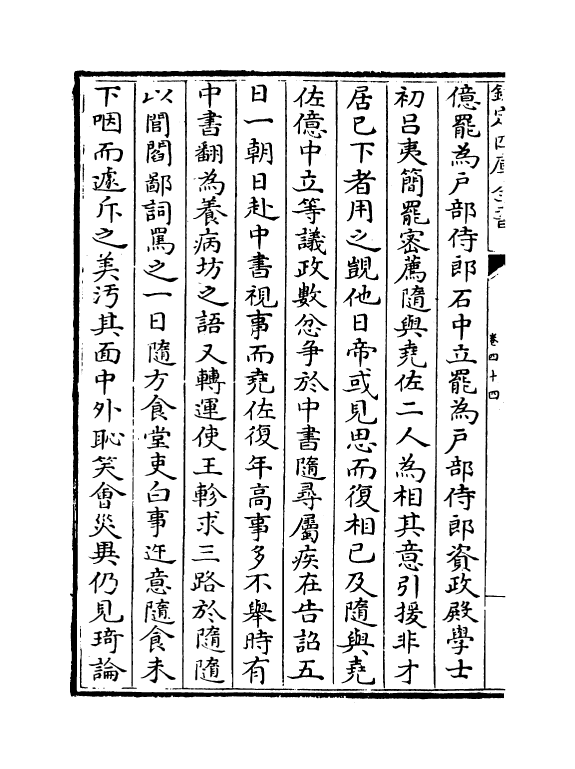 欽定四庫全書
卷四十四
億罷為戸部侍郎石中立罷為戸部侍郎資政殿學士
初吕夷簡罷宻薦隨與堯佐二人為相其意引援非才
居已下者用之覬他日帝或見思而復相已及隨與堯
佐億中立等議政數忿争於中書隨尋屬疾在告詔五
日一朝日赴中書視事而堯佐復年高事多不舉時有
中書翻為養病坊之語又轉運使王軫求三路於隨隨
以閭閻鄙詞罵之一日隨方食堂吏白事迕意隨食未
下咽而遽斥之羙汚其面中外恥笑會災異仍見琦論